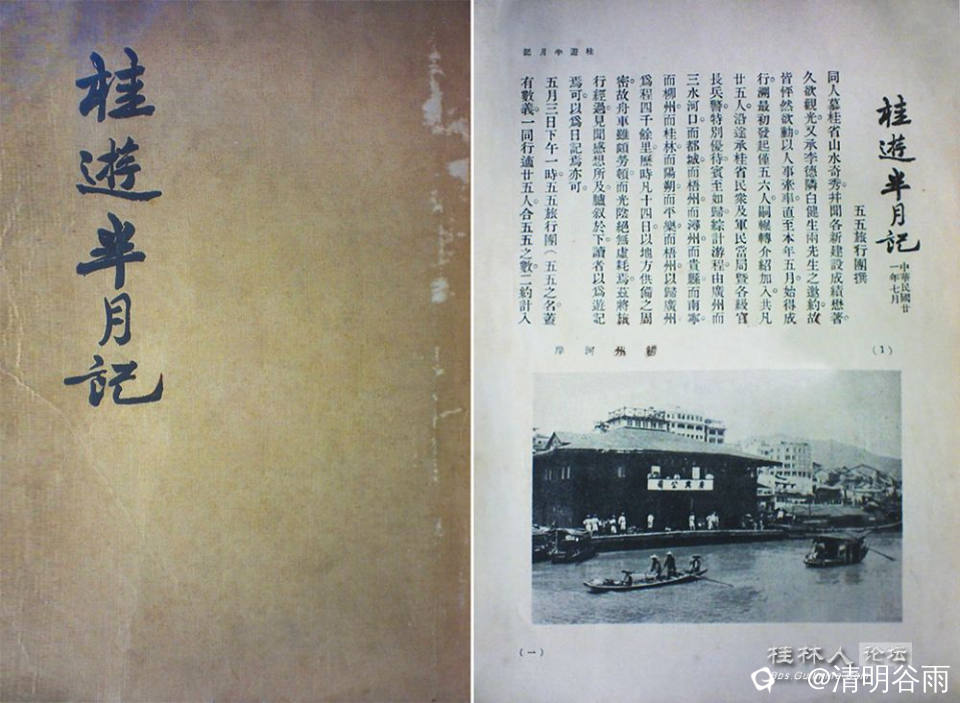 桂遊半月記
桂遊半月記
桂遊半月記
中華民國廿
一年七月
五五旅行團撰
同人慕桂省山水奇秀。并聞各新建設成績懋著。
久欲觀光。又承李德隣白健生兩先生之邀約。故
皆怦然欲動。以人事牽率。直至本年五月。始得成
行。溯最初發起。僅五六人。嗣輾轉介紹加入。共凡
廿五人。沿途承桂省民衆及軍民當局暨各級官
長兵警。特別優待。賓至如歸。綜計游程。由廣州而
三水河口。而都城。而梧州。而潯州。而貴縣。而南寧
而柳州。而桂林。而陽朔。而平樂。而梧州。以歸廣州
爲程四千餘里。歷時凡十四日。以地方供備之周
密。故舟車雖頗勞頓。而光陰絕無虛耗。焉茲將旅
行經過見聞感想所及。臚叙於下。讀者以爲遊記
焉可。以爲日記焉亦可。
五月三日下午一時。五五旅行團(五五之名蓋
有數義。一同行適廿五人。合五五之數。二約計入
(1)
梧州河岸
(一)
桂林人论坛
@清明谷雨